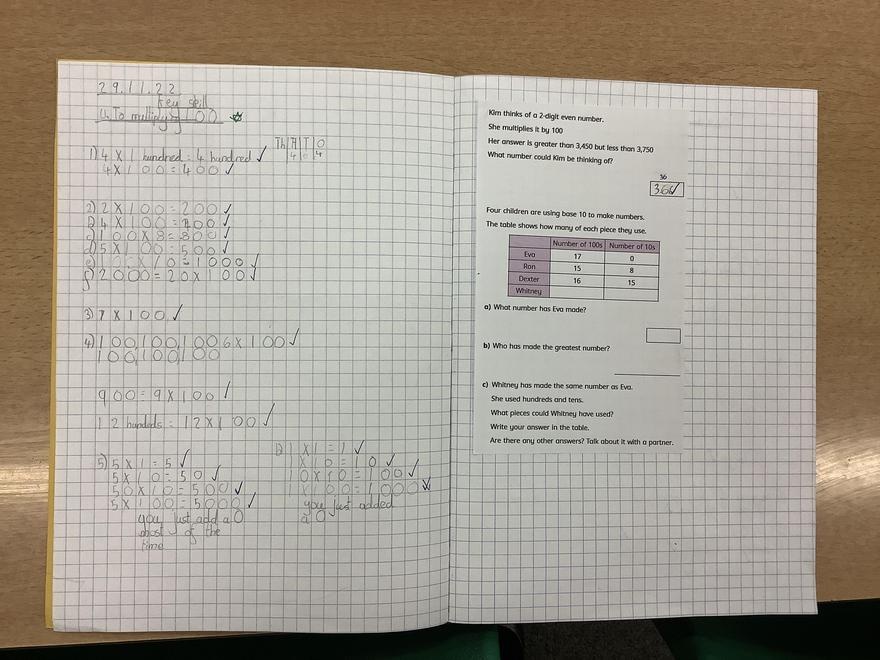 29.11.22
Key skill
L.To multiply 100
1) 4 X 1 hundred = 4 hundred ✓
4 X 100 = 400 ✓
Th H T O
4 0 4
2) 2 X 100 = 200 ✓
b) 4 X 100 = 400 ✓
c) 100 X 8 = 800 ✓
d) 5 X 100 = 500 ✓
X 10 = 1000 ✓
f) 2000 = 20 X 100 ✓
3) 7 X 100 ✓
4) 100,100,100 6 X 100 ✓
100,100,100
900 = 9 X 100 ✓
12 hundeds = 12 X 100 ✓
5) 5 X 1 = 5 ✓
5 X 10 = 50 ✓
50 X 10 = 500 ✓
5 X 100 = 5000 ✓
you just add a 0
most of the
time
b) 1 X 1 = 1 ✓
1 X 10 = 10 ✓
10 X 10 = 100 ✓
1 X 100 = 1000 ✓
you just added
a 0
Kim thinks of a 2-digit even number.
She multiplies it by 100
Her answer is greater than 3,450 but less than 3,750
What number could Kim be thinking of?
36
Four children are using base 10 to make numbers.
The table shows how many of each piece they use.
Number of 100s Number of 10s
Eva 17 0
Ron 15 8
Dexter 16 15
Whitney
a) What number has Eva made?
b) Who has made the greatest number?
c) Whitney has made the same number as Eva.
She used hundreds and tens.
What pieces could Whitney have used?
Write your answer in the table.
Are there any other answers? Talk about it with a partner.